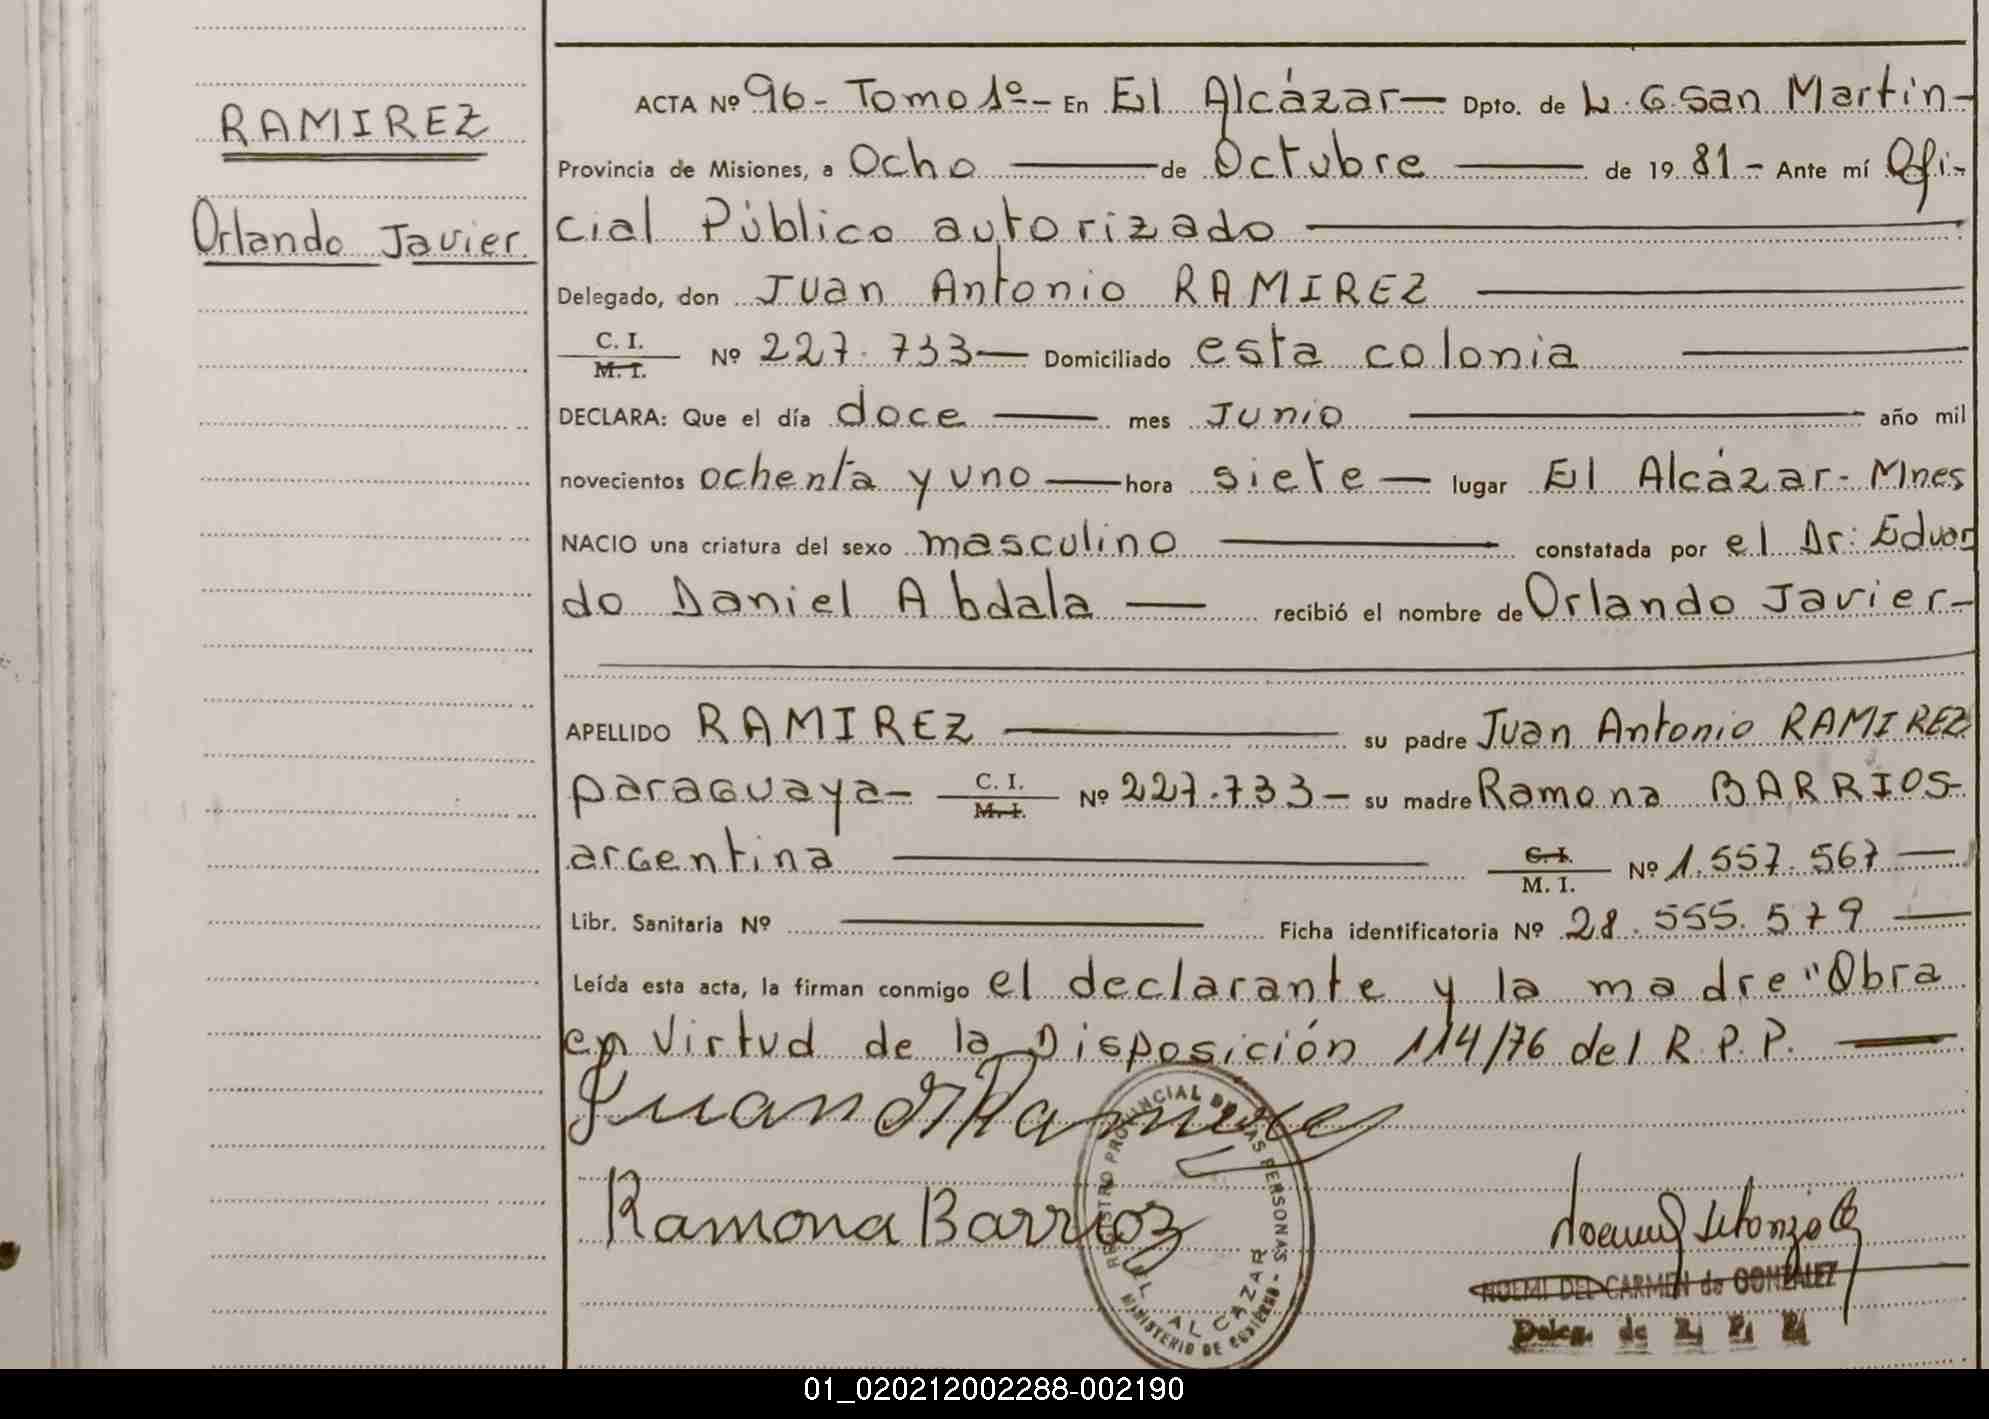 RAMIREZ
Orlando Javier
ACTA Nº 96- Tomo 1º- En El Alcázar- Dpto. de L. G. San Martin-
Provincia de Misiones, a Ocho de Octubre de 1981- Ante mí Ofi-
cial Público autorizado
Delegado, don Juan Antonio RAMIREZ
C. I.
M. I. Nº 227.733- Domiciliado esta colonia
DECLARA: Que el día doce mes Junio año mil
novecientos ochenta y uno hora siete lugar El Alcázar- Mnes
NACIO una criatura del sexo masculino constatada por el Dr: Eduar
do Daniel Abdala recibió el nombre de Orlando Javier-
APELLIDO RAMIREZ su padre Juan Antonio RAMIREZ
paraguaya- C. I. M. I. Nº 227.733- su madre Ramona BARRIOS-
argentina C. I. M. I. Nº 1.557.567
Libr. Sanitaria Nº Ficha identificatoria Nº 28.555.579
Leída esta acta, la firman conmigo el declarante y la madre "Obra
en virtud de la Disposición 114/76 del R.P.P.
Juan A Ramirez
Ramona Barrioz
REGISTRO PROVINCIAL DE LAS PERSONAS
EL ALCAZAR
MINISTERIO DE GOBIERNO
NOEMI DEL CARMEN de GONZALEZ
Deleg. de R. P. P.
01_020212002288-002190